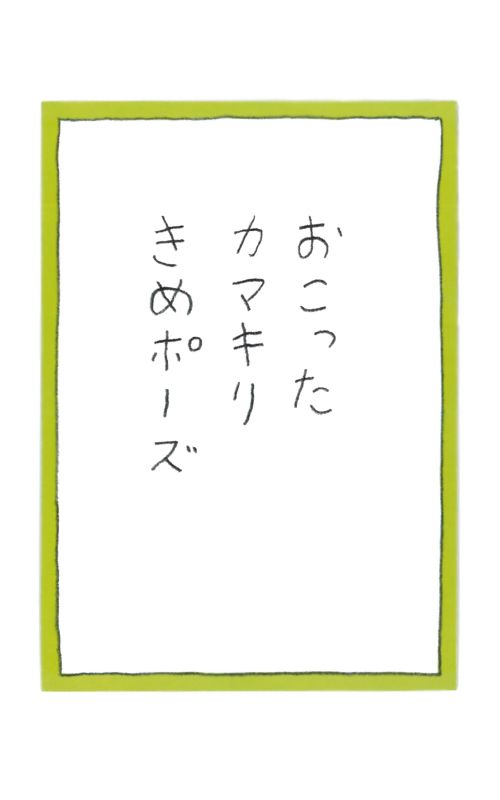 おこった
カマキリ
きめポーズ